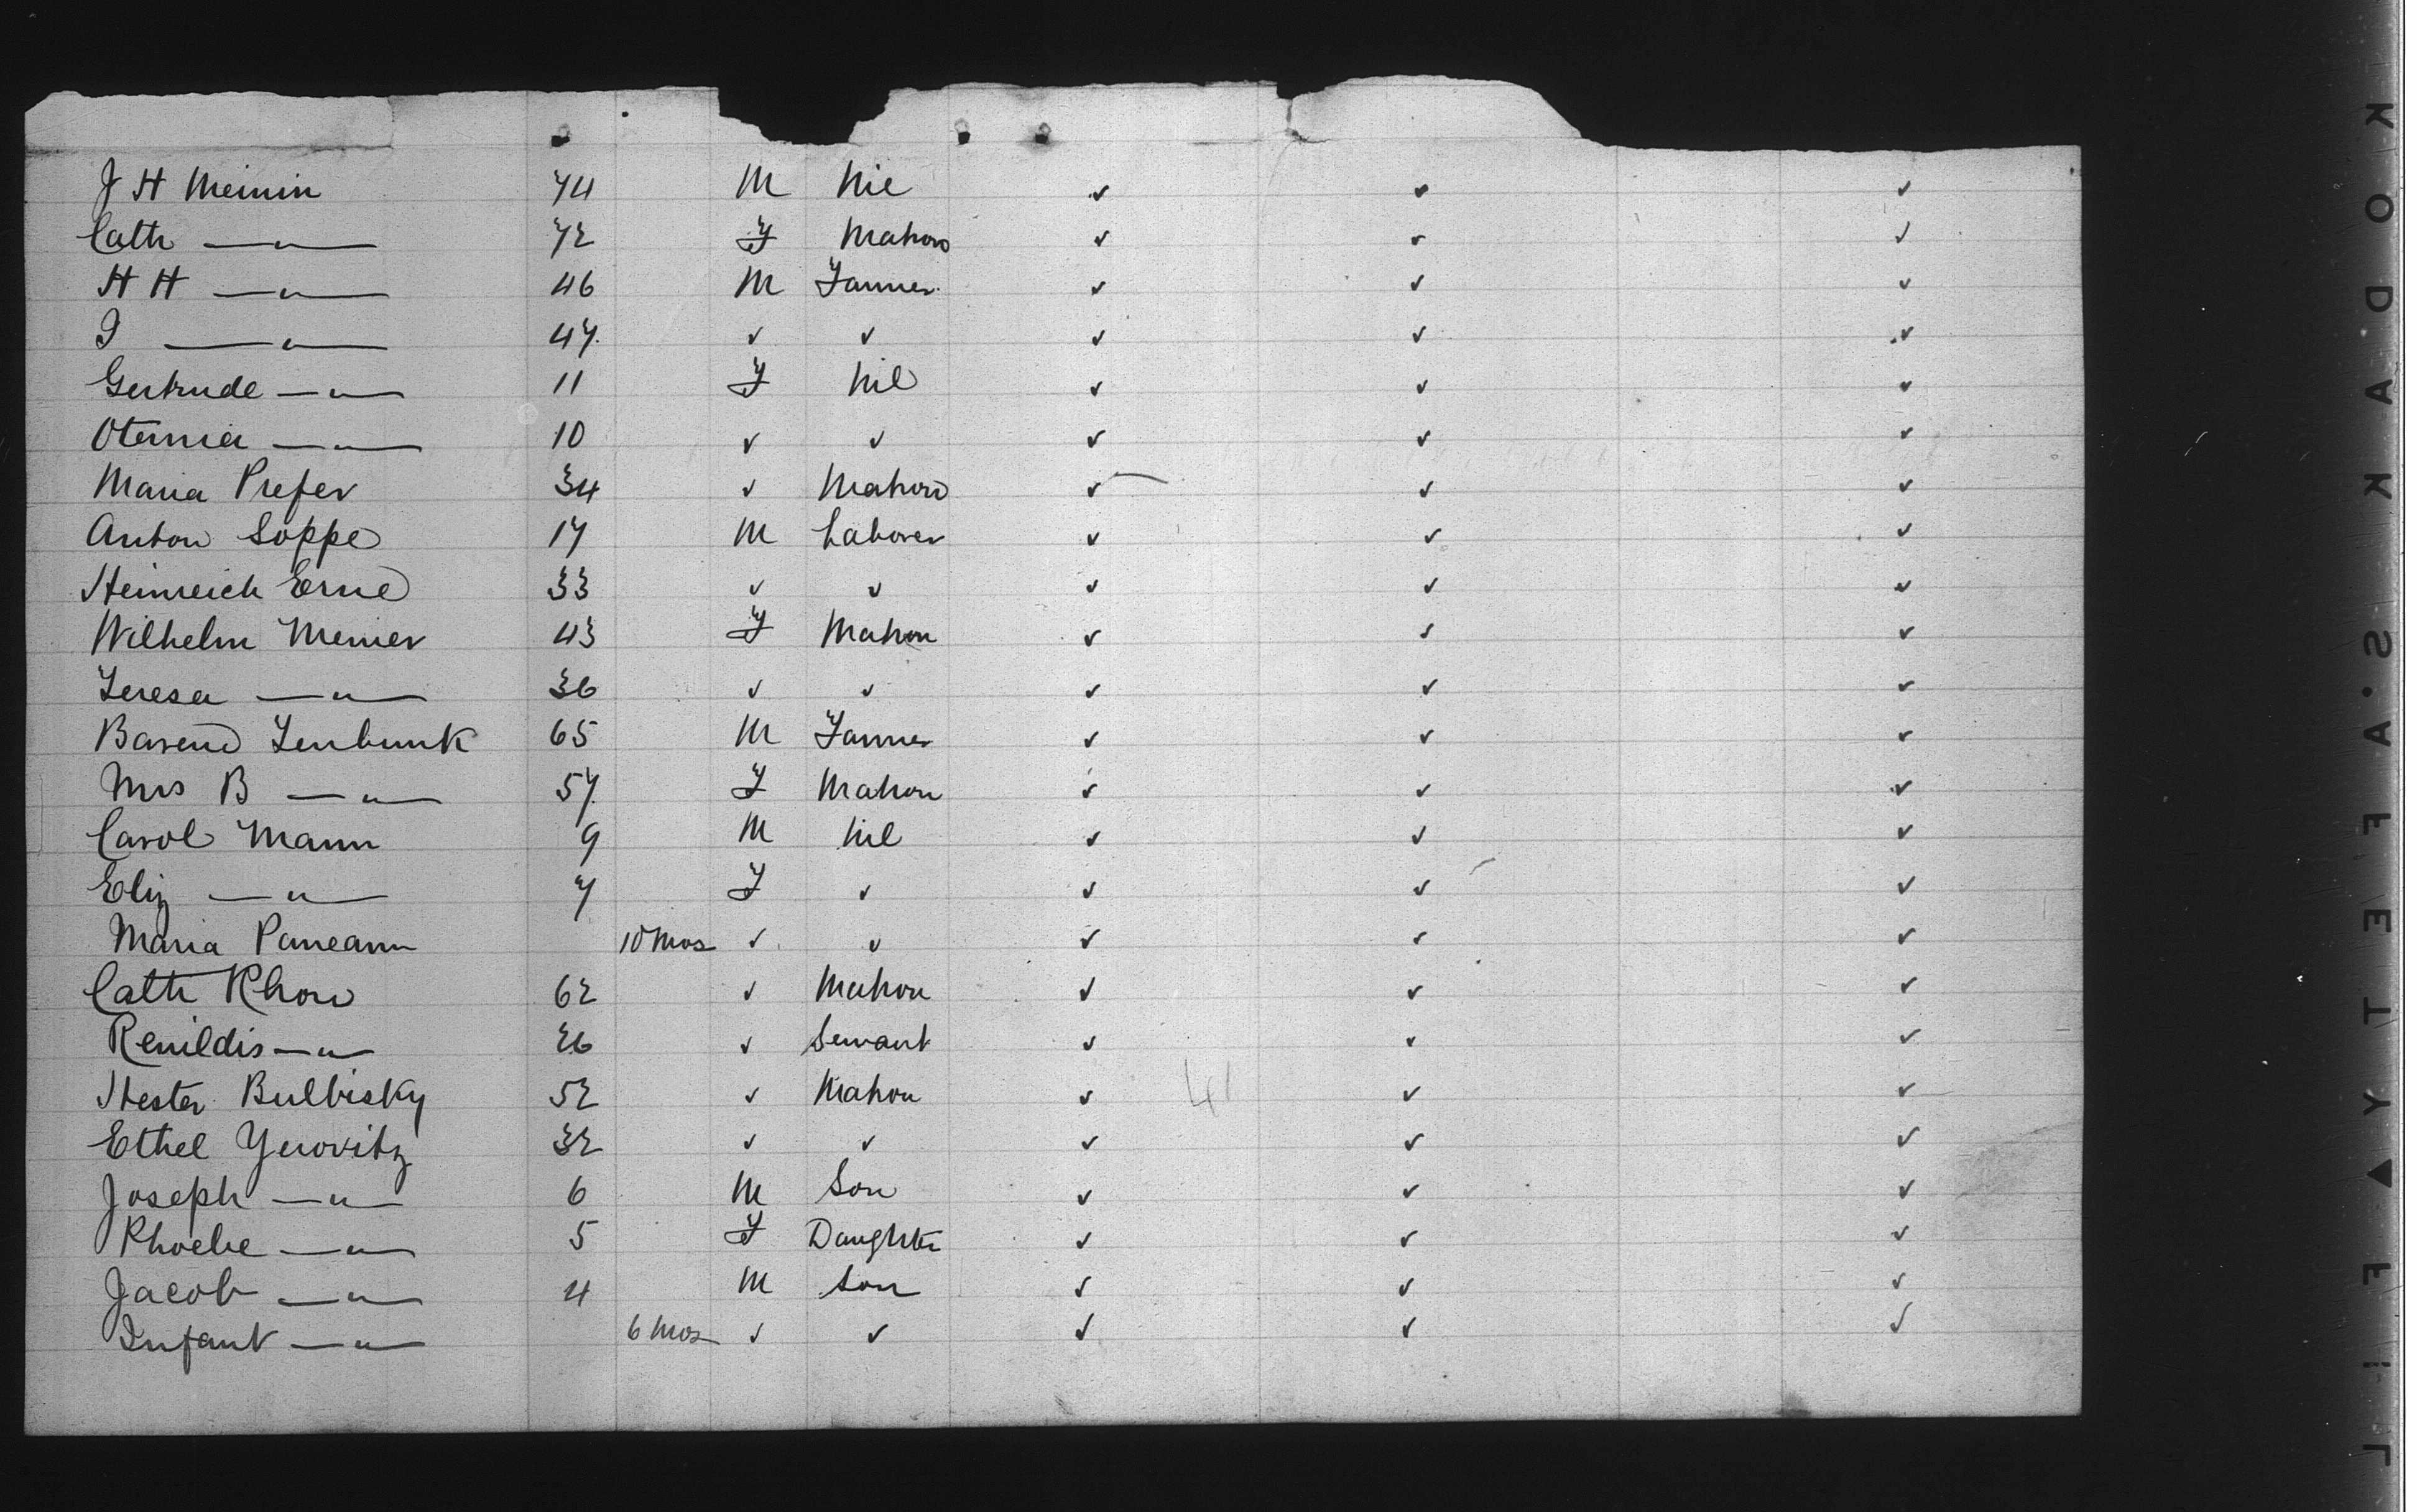 J H Meinin 74 M Nil ✓ ✓ ✓
Cath —"— 72 F Matron ✓ ✓ ✓
H H —"— 46 M Farmer ✓ ✓ ✓
I —"— 47 ✓ ✓ ✓ ✓ ✓
Gertrude —"— 11 F Nil ✓ ✓ ✓
Oternia —"— 10 ✓ ✓ ✓ ✓ ✓
Maria Prefer 34 ✓ Matron ✓ ✓ ✓
Anton Soppe 17 M Laborer ✓ ✓ ✓
Heinreich Erne 33 ✓ ✓ ✓ ✓ ✓
Wilhelm Menier 43 F Matron ✓ ✓ ✓
Teresa —"— 36 ✓ ✓ ✓ ✓ ✓
Barend 65 M Farmer ✓ ✓ ✓
Mrs B —"— 57 F Matron ✓ ✓ ✓
Carol Mann 9 M Nil ✓ ✓ ✓
Eliz —"— 7 F ✓ ✓ ✓ ✓
Maria Paneann 10 mos ✓ ✓ ✓ ✓ ✓
Cath Khon 62 ✓ Matron ✓ ✓ ✓
Renildis —"— 26 ✓ Servant ✓ ✓ ✓
Hester Bulbisky 52 ✓ Matron ✓ ✓ ✓
Ethel Yerovitz 32 ✓ ✓ ✓ ✓ ✓
Joseph —"— 6 M Son ✓ ✓ ✓
Phoebe —"— 5 F Daughter ✓ ✓ ✓
Jacob —"— 4 M Son ✓ ✓ ✓
Infant —"— 6 mos ✓ ✓ ✓ ✓ ✓
KODAK S.AFETY ▲ FIL